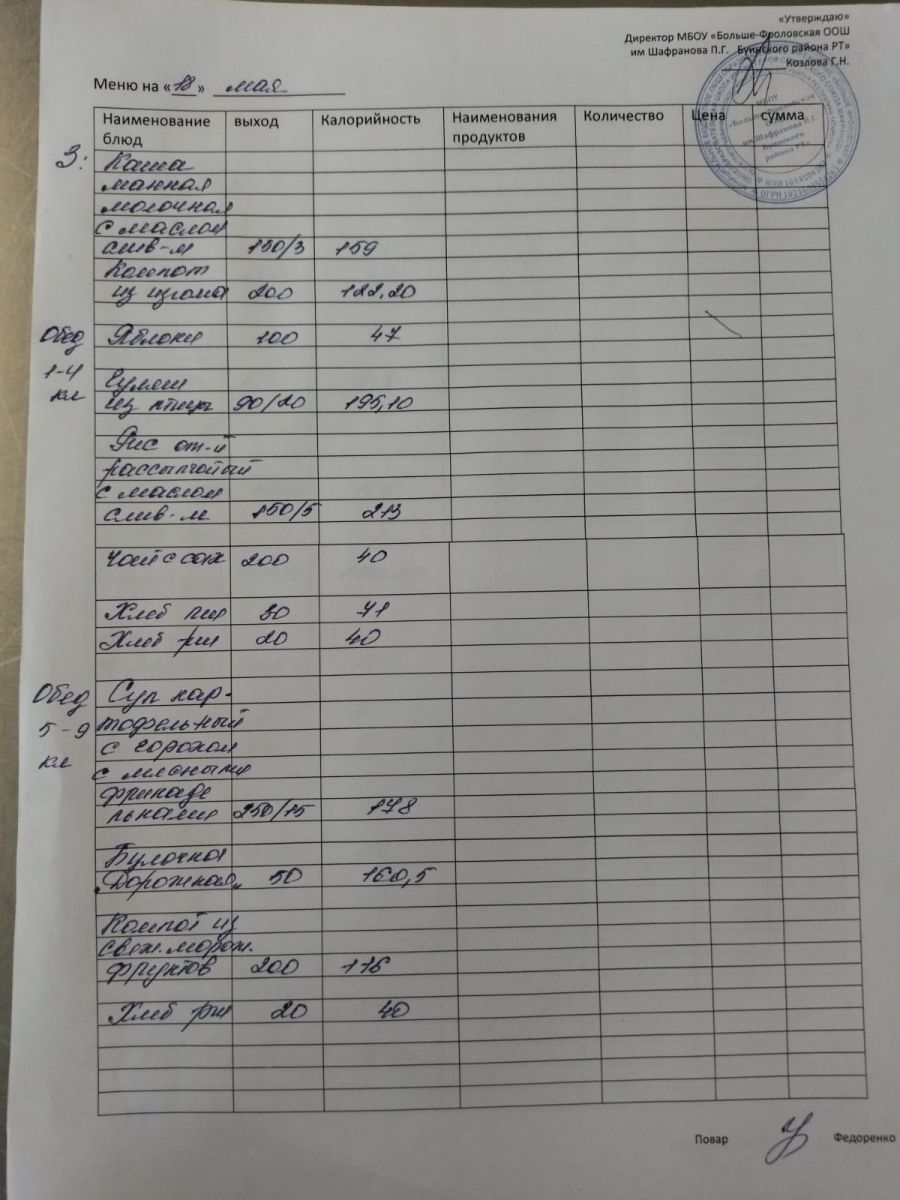 «Утверждаю»
Директор МБОУ «Больше-Фроловская ООШ
им Шафранова П.Г. Буинского района РТ»
Козлова Г.Н.
Меню на «18» мая
Наименование блюд выход Калорийность Наименования продуктов Количество Цена сумма
З:
Каша
манная
молочная
с маслом
слив-м 150/3 159
Компот
из изюма 200 122,20
Обед
1-4
кл
Яблоки 100 47
Гуляш
из птицы 90/20 195,10
Рис от-й
рассыпчатый
с маслом
слив-м 150/5 213
Чай с сах 200 40
Хлеб пш 30 71
Хлеб рж 20 40
Обед
5-9
кл
Суп кар-
тофельный
с горохом
с мясными
фрикаде
льками 250/15 178
Булочка
"Дорожная" 50 160,5
Компот из
свеж.морож.
фруктов 200 116
Хлеб рж 20 40
Повар Федоренко